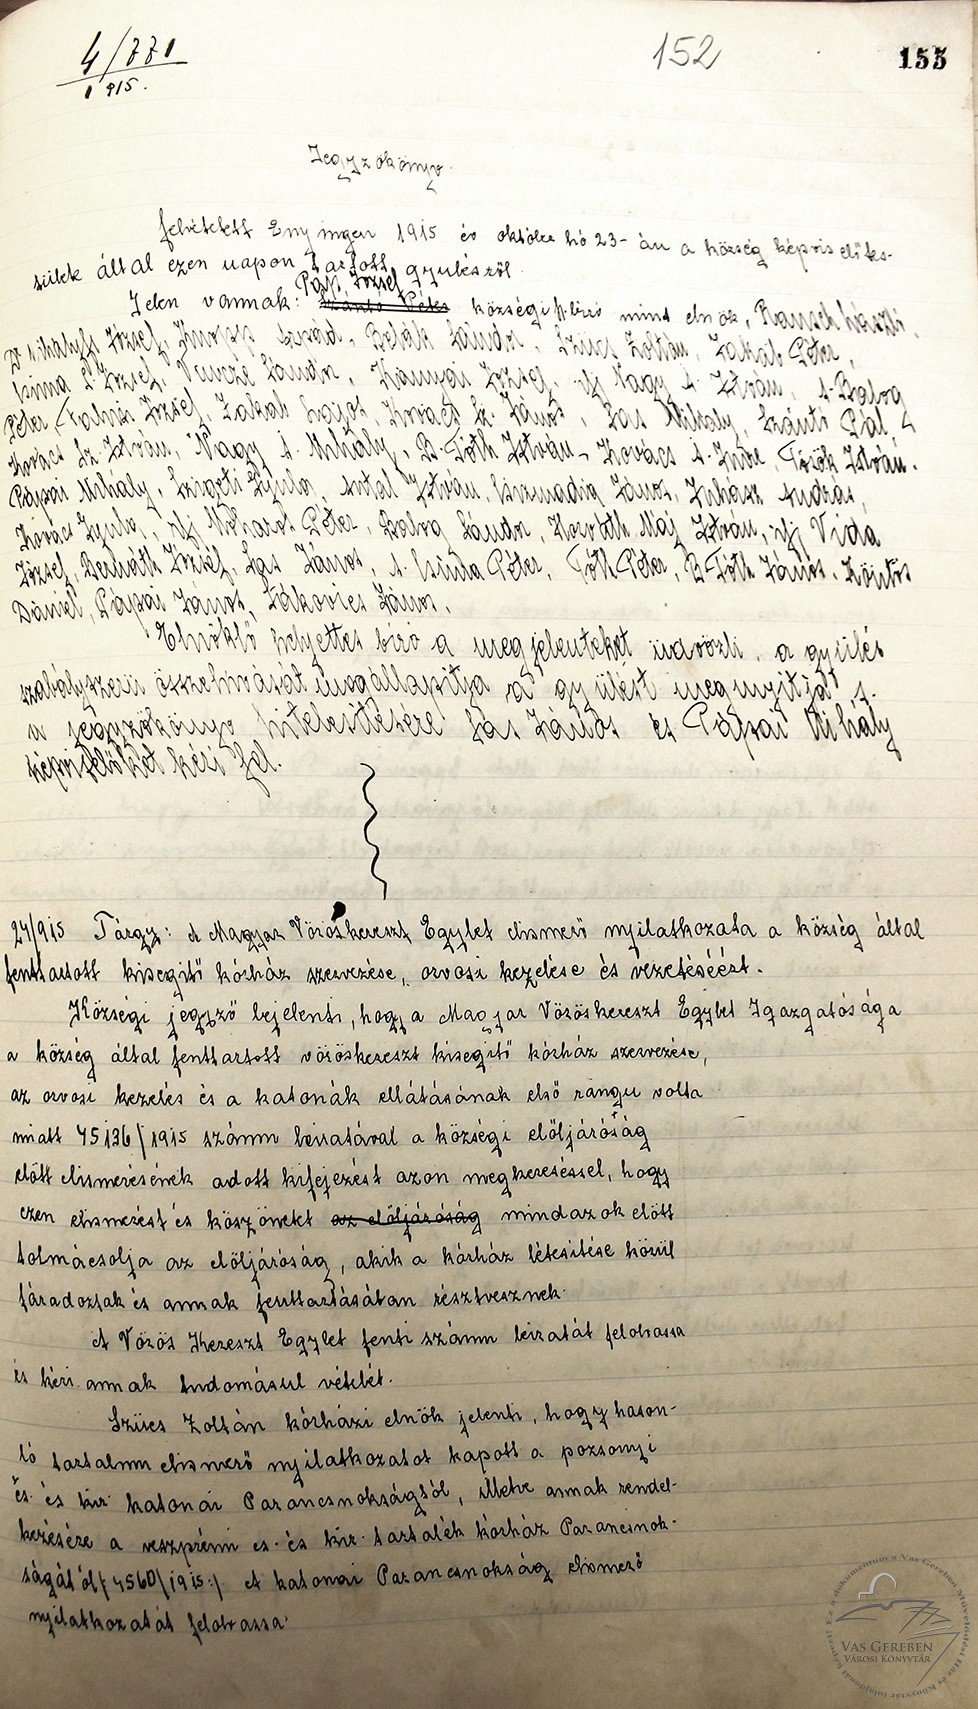 4/771
1915.
152
155
Jegyzőkönyv.
felvétetett Enyingen 1915 év október hó 23-án a község képviselőtes-
tülete által ezen napon tartott gyülésről.
Papp József
Jelen vannak: Szántó Péter községi h. biró mint elnök, Rausch László,
Dr Mihályfi József, Árpád, Polák Sándor, Szücs Zoltán, Zakál Péter,
József, Vincze Sándor, Kányai József, ifj Nagy A. István, A. Balog
Péter, József, Zakál Lajos, Kovács Sz. János, Sas Mihály, Szántó Pál,
Kovács Sz. István, Nagy A. Mihály, B. Tóth István, Kovács A. Imre, Török István.
Pápai Mihály, Szigeti Gyula, Antal István, Csizmadia János, Juhász András,
Kovács Gyula, ifj Péter, Balog Sándor, Horváth Máj István, ifj Vida
József, Bernáth József, Sas János, A. Sima Péter, Tóth Péter, B Tóth János, Köntös
Dániel, Pápai János, Lákovics János.
Elnöklő helyettes biró a megjelenteket üdvözli, a gyülés
szabályszerü összehivását megállapitja a gyülést megnyitja s.
a jegyzőkönyv hitelesitésére Sas János és Pápai Mihály
képviselőket kéri fel.
24/915 Tárgy: A Magyar Vöröskereszt Egylet elismerő nyilatkozata a község által
fenttartott kisegitő kórház szervezése, orvosi kezelése és vezetéséért.
Községi jegyző bejelenti, hogy a Magyar Vöröskereszt Egylet Igazgatósága
a község által fenttartott vöröskereszt kisegitő kórház szervezése,
az orvosi kezelés és a katonák ellátásának első rangu volta
miatt 45136/1915 számu leiratával a községi előljáróság
előtt elismerésének adott kifejezést azon megkereséssel, hogy
ezen elismerést és köszönetet az előljáróság mindazok előtt
tolmácsolja az előljáróság, akik a kórház létesitése körül
fáradoztak és annak fenttartásában résztvesznek.
A Vörös Kereszt Egylet fenti számu leiratát felolvassa
és kéri annak tudomásul vételét.
Szücs Zoltán kórházi elnök jelenti, hogy hason-
ló tartalmu elismerő nyilatkozatot kapott a pozsonyi
cs. és kir katonai Parancsnokságtól, illetve annak rendel-
kezésére a veszprémi cs. és kir. tartalék kórház Parancsnok-
ságától /:4560/1915:/ A katonai Parancsnokság elismerő
nyilatkozatát felolvassa.
VAS GEREBEN
VÁROSI KÖNYVTÁR